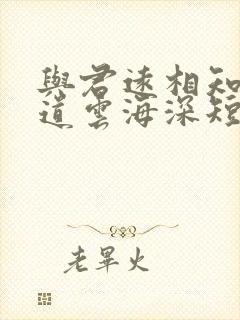 與君遠相知
道雲海深短
老畢火